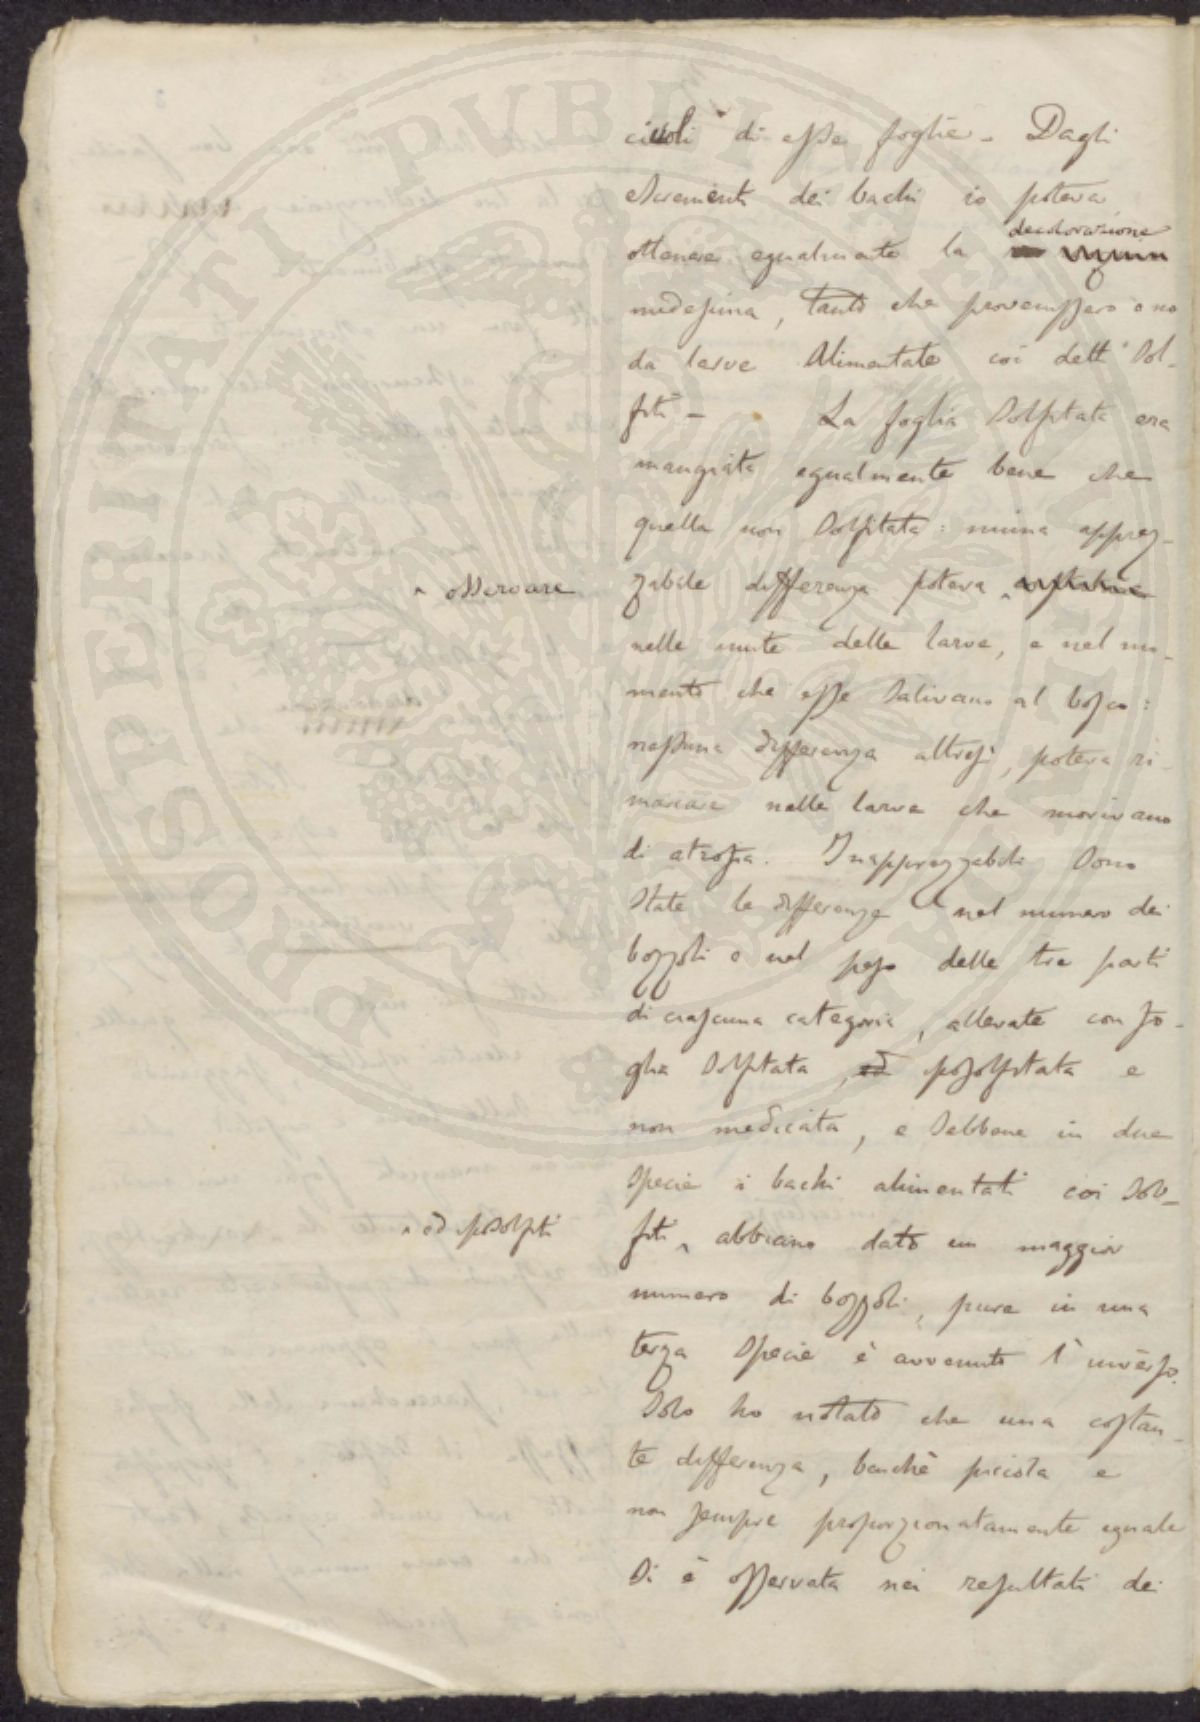 PROSPERITATI PUBLICAE AUGENDAE
civoli di esse foglie - Dagli
escrementi dei bachi io poteva
decolorazione
ottenere egualmente la
medesima, tanto che provenissero o no
da larve alimentate coi dett' sol-
fiti - La foglia solfitata era
mangiata egualmente bene che
quella non solfitata: niuna apprez-
zabile differenza poteva ^
^ osservare
nelle mute delle larve, e nel mo-
mento che esse salivano al bosco:
nessuna differenza altresì, poteva ri-
marcare nelle larve che morivano
di atrofia. Inapprezzabili sono
state le differenze nel numero dei
bozzoli e nel peso delle tre parti
di ciascuna categoria, allevate con fo-
glia solfitata, ed iposolfitata e
non medicata, e sebbene in due
specie i bachi alimentati coi sol-
fiti ^ abbiano dato un maggior
^ ed iposolfiti
numero di bozzoli, pure in una
terza specie è avvenuto l'inverso.
Solo ho notato che una costan-
te differenza, benchè piccola e
non sempre proporzionatamente eguale
si è osservata nei resultati dei